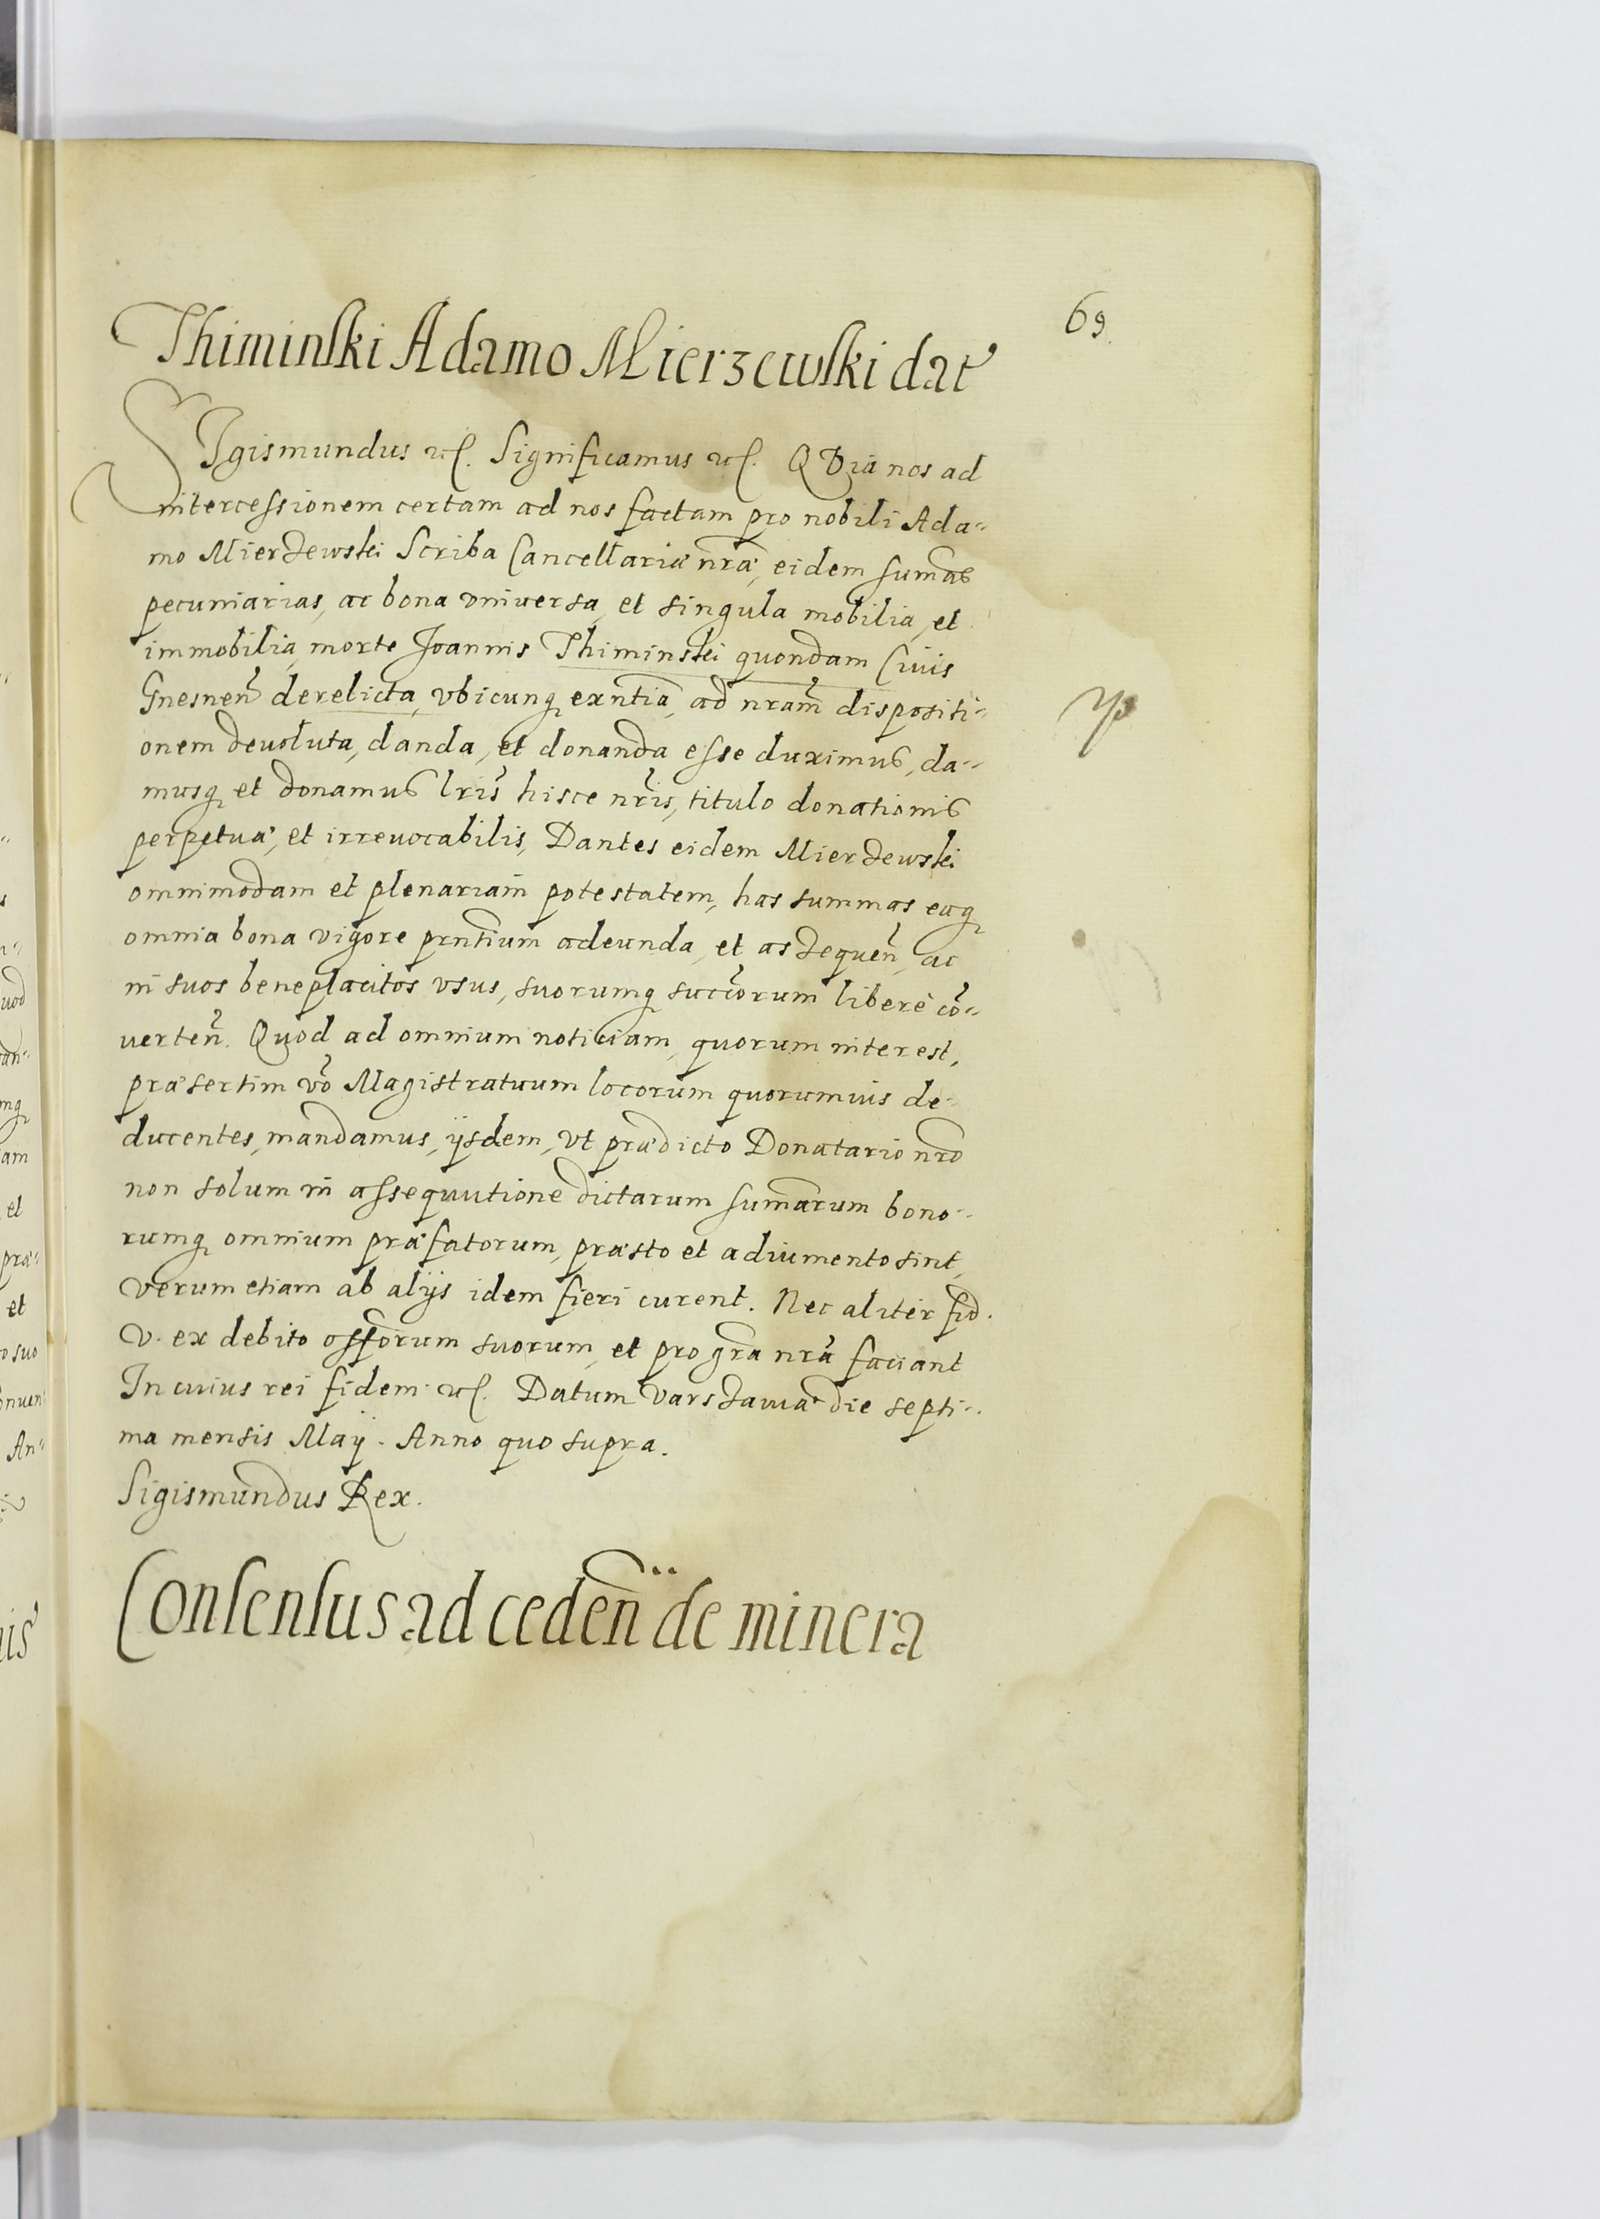 69.
Thiminski Adamo Mierzewski dat
SIgismundus etc. Significamus etc. QVia nos ad
intercessionem certam ad nos factam pro nobili Ada-
mo Mierzewski Scriba Cancellariæ nrãe, eidem sum̃as
pecuniarias, ac bona vniuersa, et singula mobilia, et
immobilia, morte Joannis Thiminski quondam Ciuis
Gnesneñ derelicta, vbicunq exñtia, ad nrãm dispositi-
onem deuoluta, danda, et donanda esse duximus, da-
musq et donamus lris̃ hisce nrĩs, titulo donationis
perpetuæ, et irreuocabilis, Dantes eidem Mierzewski
omnimodam et plenariam potestatem, has summas eaq
omnia bona vigore prñtium adeunda, et aszequeñ, ac
in suos beneplacitos vsus, suorumq succõrum liberè cõ-
uerteñ. Quod ad omnium noticiam, quorum interest,
præsertim võ Magistratuum locorum quorumuis de-
ducentes, mandamus, ijsdem, vt prædicto Donatario nrõ
non solum in assequutione dictarum sum̃arum bono-
rumq omnium præfatorum, præsto et adiumento sint,
verum etiam ab alijs idem fieri curent. Nec aliter fid.
v. ex debito offõrum suorum, et pro grã nrã faciant
In cuius rei fidem etc. Datum Varszauiæ die septi-
ma mensis Maij. Anno quo supra.
Sigismundus Rex.
Consensus ad cedeñ de minera